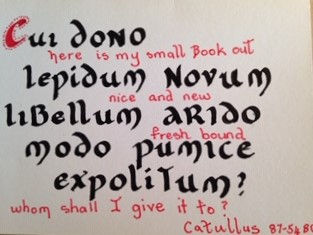 Cui dono
here is my small Book out
lepidum novum
nice and new
libellum arido
fresh bound
modo pumice
expolitum?
whom shall I give it to?
Catullus 87-54 BC